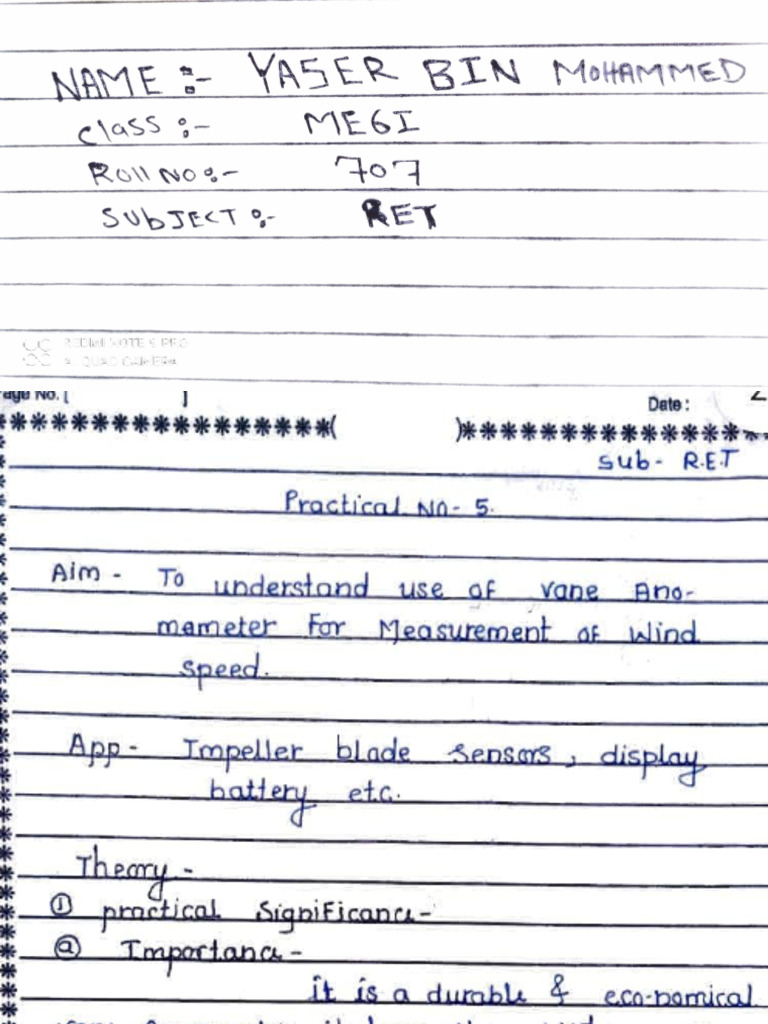 NAME :- YASER BIN MOHAMMED
Class :- ME6I
Roll NO :- 707
SUBJECT :- RET
REDMI NOTE 6 PRO
AI QUAD CAMERA
age No. [ ]
Date :
Sub - R.E.T
Practical No - 5.
Aim - To understand use of vane Ano-
mameter For Measurement of Wind
speed.
App - Impeller blade sensors, display
battery etc.
Theory -
① practical Significance -
ⓐ Importance -
it is a durable & eco-nomical